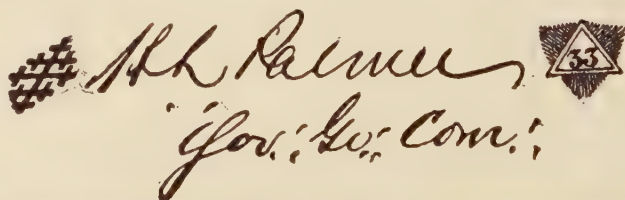 H L Palmer 33
Sov∴ Gr∴ Com∴